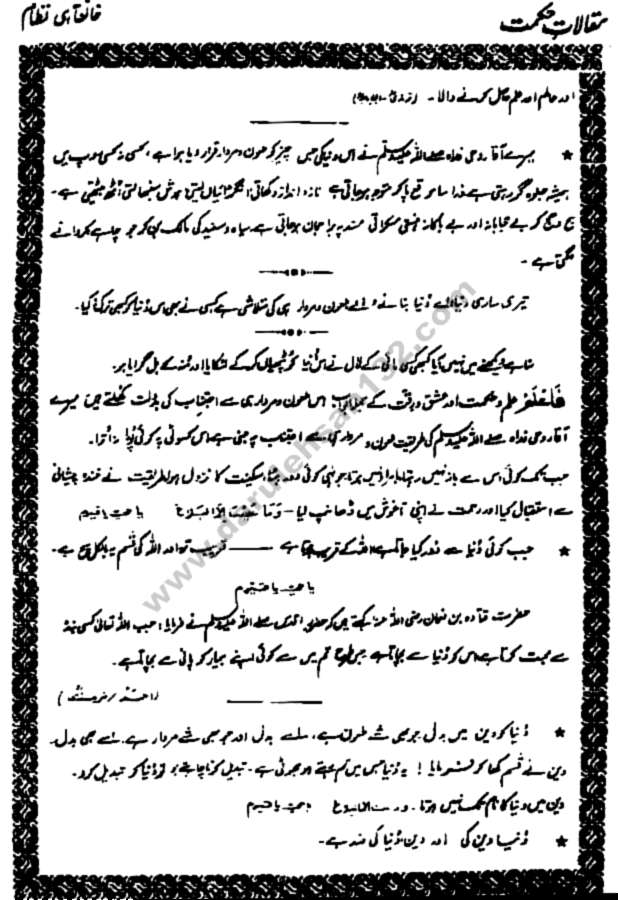 مقالاتِ حکمت
خانقاہی نظام
اور عالم اور علم حاصل کرنے والا ۔
★ میرے آقا روحی فداہ صلے اللہ علیہ وسلم نے اس دنیا کی جس چیز کو ملعون و مردار قرار دیا ہوا ہے ، کسی نہ کسی روپ میں
ہمیشہ جلوہ گر رہتی ہے ذرا سا موقع پا کر متوجہ ہو جاتی ہے ناز و انداز دکھاتی انگڑائیاں لیتی ہوش سنبھالتی اُٹھ بیٹھتی ہے ۔
سج دھج کر بے حجابانہ اور بے باکانہ ہنستی مسکراتی مسند پہ براجمان ہو جاتی ہے سیاہ و سفید کی مالک بن کر جو چاہے کروانے
لگتی ہے ۔
تیری ساری دنیا اے دُنیا بنانے والے ملعون و مردار ہی کی متلاشی ہے کسی نے بھی اس دُنیا کو کبھی ترک نہ کیا ۔
سنا ہے دیکھنے میں نہیں آیا کبھی کسی مائی کے لال نے اس دُنیا کو لٹکایا اور مُنہ کے بل گرایا ہو ۔
فَاعْلَمْ علم و حکمت اور عشق و رقت کے اس ملعون و مردار ہی سے اجتناب کی بدولت کھلتے ہیں میرے
آقا روحی فداہ صلے اللہ علیہ وسلم کی طریقت ملعون و مردار ہی سے اجتناب پہ مبنی ہے اس کسوٹی پہ کوئی پورا نہ اُترا ۔
جب تک کوئی اس سے باز نہیں رہتا جونہی کوئی دور ہٹا سکینت کا نزول ہوا طریقت نے خندہ پیشانی
سے استقبال کیا اور رحمت نے اپنی آغوش میں ڈھانپ لیا ۔ وَمَا عَلَيْنَا اِلَّا الْبَلَاغ یا حی یا قیوم
★ جب کوئی دُنیا سے دُور کیا جاتا ہے اللہ کے قریب ہوتا ہے ——— قریب تر اور اللہ کی قسم یہ بالکل سچ ہے ۔
یا حی یا قیوم
حضرت قتادہ بن نعمان رضی اللہ عنہ کہتے ہیں کہ حضور اقدس صلے اللہ علیہ وسلم نے فرمایا : جب اللہ تعالیٰ کسی بندہ
سے محبت کرتا ہے اس کو دُنیا سے بچاتا ہے جس طرح تم میں سے کوئی اپنے بیمار کو پانی سے بچاتا ہے ۔
( احمد / ترمذی )
★ دُنیا کو دین میں بدل جو بھی شے ملعون ہے ، اسے بدل اور جو بھی شے مردار ہے اسے بھی بدل ۔
دین نے قسم کھا کر فرمایا ! یہ دُنیا جس میں تم رہتے ہو جھوٹی ہے ۔ تبدیل کرنا چاہتے ہو تو دُنیا کو تبدیل کرو ۔
دین میں دنیا کا نام تک نہیں ہوتا ۔ یا حی یا قیوم
★ دُنیا دین کی اور دین دُنیا کی ضد ہے ۔
www.darulehsan132.com